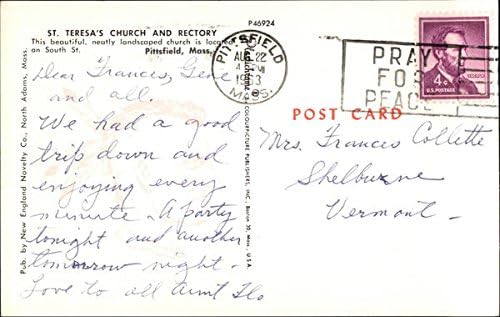 P46924
ST. TERESA'S CHURCH AND RECTORY
This beautiful, neatly landscaped church is located
on South St. Pittsfield, Mass.
Dear Frances, Gene
and all.
We had a good
trip down and
enjoying every
minute. A party
tonight and another
tomorrow night.
Love to all Aunt Flo
Pub. by New England Novelty Co., North Adams, Mass.
COLOURPICTURE PUBLISHERS, INC., Boston 30, Mass., U.S.A.
PITTSFIELD
AUG 22
PM
1963
MASS.
PRAY
FOR
PEACE
4¢
U.S. POSTAGE
POST CARD
Mrs. Frances Collette
Shelburne
Vermont